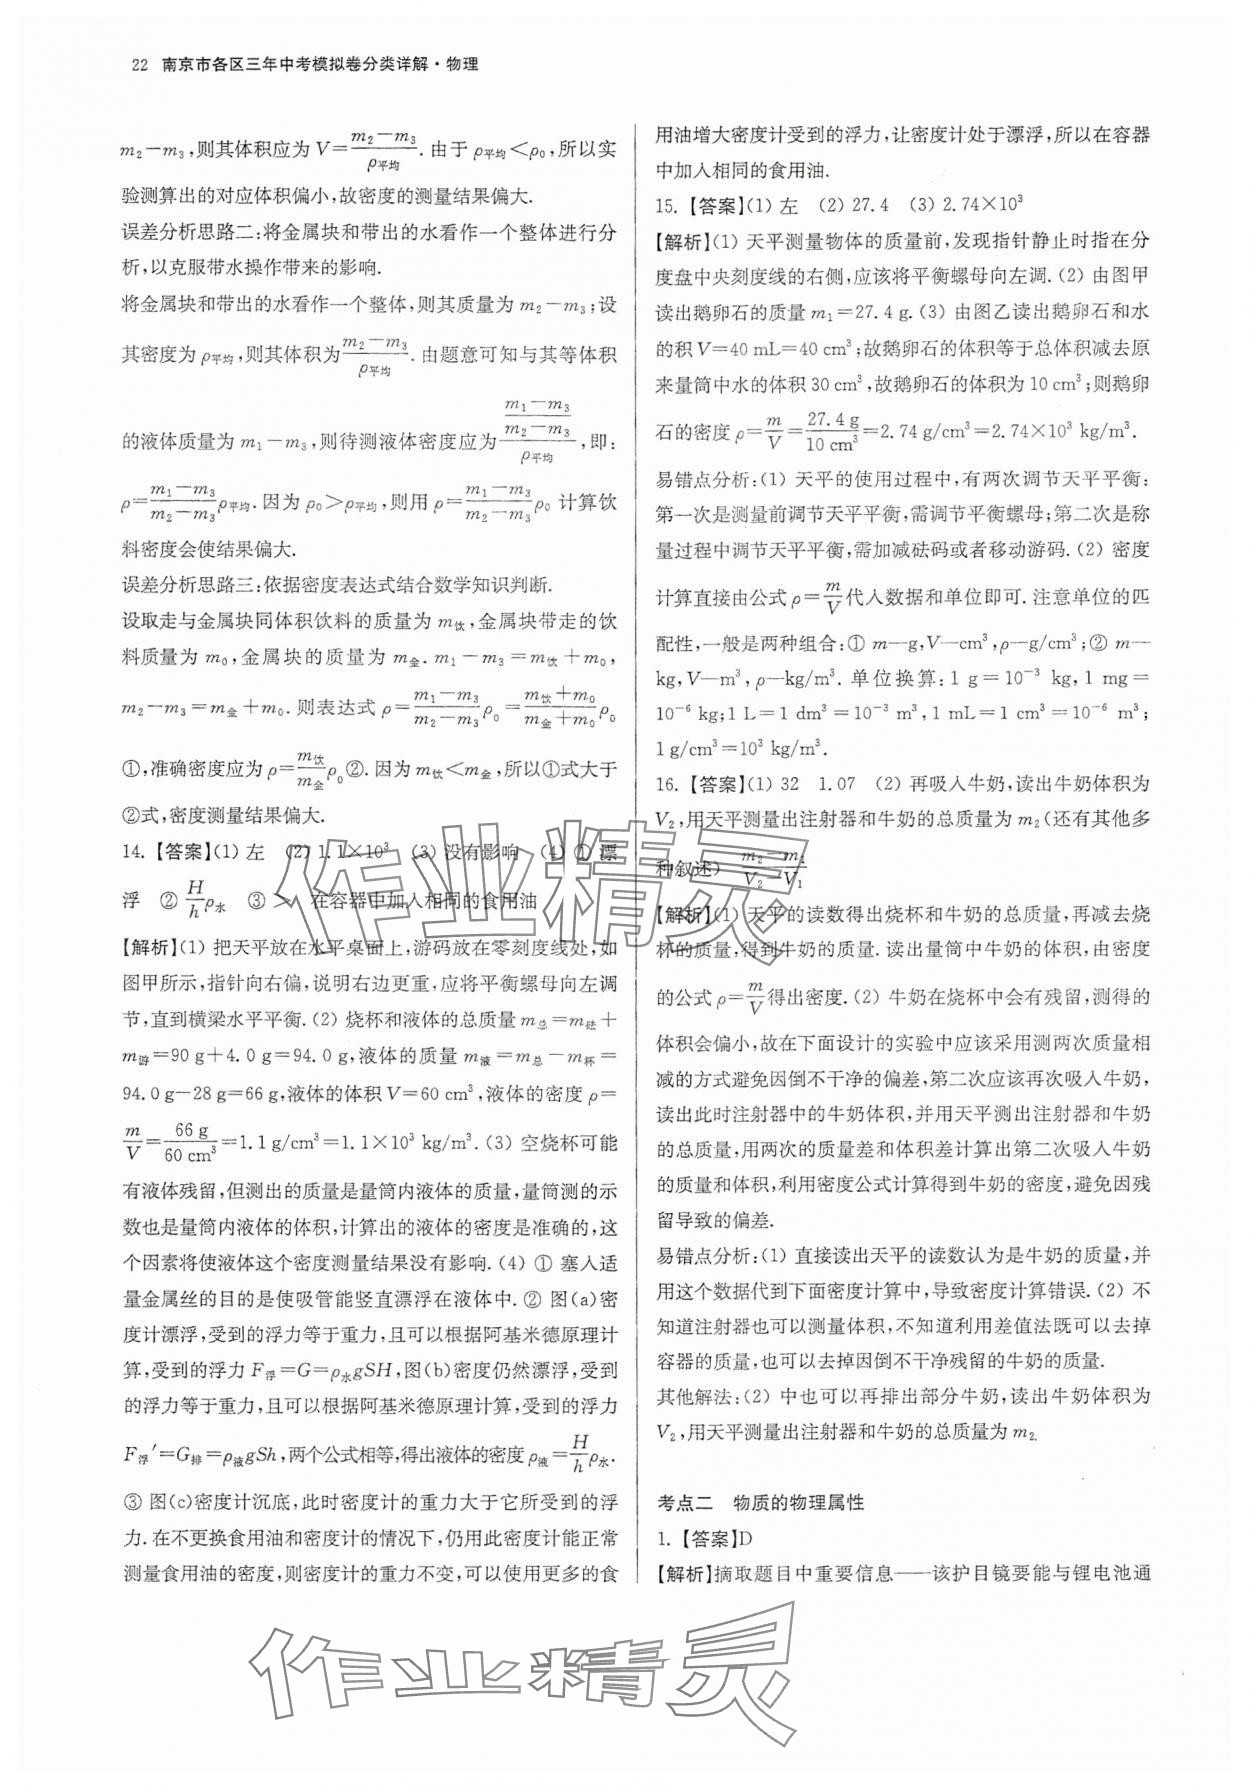 22 南京市各区三年中考模拟卷分类详解·物理
m₂－m₃,则其体积应为 V＝(m₂－m₃)/ρ平均. 由于 ρ平均＜ρ₀,所以实
验测算出的对应体积偏小,故密度的测量结果偏大.
误差分析思路二:将金属块和带出的水看作一个整体进行分
析,以克服带水操作带来的影响.
将金属块和带出的水看作一个整体,则其质量为 m₂－m₃;设
其密度为 ρ平均,则其体积为(m₂－m₃)/ρ平均. 由题意可知与其等体积
的液体质量为 m₁－m₃,则待测液体密度应为(m₁－m₃)/((m₂－m₃)/ρ平均),即:
ρ＝(m₁－m₃)/(m₂－m₃)ρ平均. 因为 ρ₀＞ρ平均,则用 ρ＝(m₁－m₃)/(m₂－m₃)ρ₀ 计算饮
料密度会使结果偏大.
误差分析思路三:依据密度表达式结合数学知识判断.
设取走与金属块同体积饮料的质量为 m饮,金属块带走的饮
料质量为 m₀,金属块的质量为 m金. m₁－m₃＝m饮＋m₀,
m₂－m₃＝m金＋m₀. 则表达式 ρ＝(m₁－m₃)/(m₂－m₃)ρ₀＝(m饮＋m₀)/(m金＋m₀)ρ₀
①,准确密度应为 ρ＝m饮/m金 ρ₀②. 因为 m饮＜m金,所以①式大于
②式,密度测量结果偏大.
14. 【答案】(1) 左 (2) 1.1×10³ (3) 没有影响 (4) ① 漂
浮 ② H/h ρ水 ③ ＞ 在容器中加入相同的食用油
【解析】(1) 把天平放在水平桌面上,游码放在零刻度线处,如
图甲所示,指针向右偏,说明右边更重,应将平衡螺母向左调
节,直到横梁水平平衡. (2) 烧杯和液体的总质量 m总＝m砝＋
m游＝90 g＋4.0 g＝94.0 g,液体的质量 m液＝m总－m杯＝
94.0 g－28 g＝66 g,液体的体积 V＝60 cm³,液体的密度 ρ＝
m/V＝66 g/60 cm³＝1.1 g/cm³＝1.1×10³ kg/m³. (3) 空烧杯可能
有液体残留,但测出的质量是量筒内液体的质量,量筒测的示
数也是量筒内液体的体积,计算出的液体的密度是准确的,这
个因素将使液体这个密度测量结果没有影响. (4) ① 塞入适
量金属丝的目的是使吸管能竖直漂浮在液体中. ② 图(a)密
度计漂浮,受到的浮力等于重力,且可以根据阿基米德原理计
算,受到的浮力 F浮＝G＝ρ水gSH,图(b)密度仍然漂浮,受到
的浮力等于重力,且可以根据阿基米德原理计算,受到的浮力
F浮′＝G排＝ρ液gSh,两个公式相等,得出液体的密度 ρ液＝H/h ρ水.
③ 图(c)密度计沉底,此时密度计的重力大于它所受到的浮
力. 在不更换食用油和密度计的情况下,仍用此密度计能正常
测量食用油的密度,则密度计的重力不变,可以使用更多的食
用油增大密度计受到的浮力,让密度计处于漂浮,所以在容器
中加入相同的食用油.
15. 【答案】(1) 左 (2) 27.4 (3) 2.74×10³
【解析】(1) 天平测量物体的质量前,发现指针静止时指在分
度盘中央刻度线的右侧,应该将平衡螺母向左调. (2) 由图甲
读出鹅卵石的质量 m₁＝27.4 g. (3) 由图乙读出鹅卵石和水
的积 V＝40 mL＝40 cm³;故鹅卵石的体积等于总体积减去原
来量筒中水的体积 30 cm³,故鹅卵石的体积为 10 cm³;则鹅卵
石的密度 ρ＝m/V＝27.4 g/10 cm³＝2.74 g/cm³＝2.74×10³ kg/m³.
易错点分析:(1) 天平的使用过程中,有两次调节天平平衡:
第一次是测量前调节天平平衡,需调节平衡螺母;第二次是称
量过程中调节天平平衡,需加减砝码或者移动游码. (2) 密度
计算直接由公式 ρ＝m/V代入数据和单位即可. 注意单位的匹
配性,一般是两种组合:① m—g,V—cm³,ρ—g/cm³;② m—
kg,V—m³,ρ—kg/m³. 单位换算:1 g＝10⁻³ kg,1 mg＝
10⁻⁶ kg;1 L＝1 dm³＝10⁻³ m³,1 mL＝1 cm³＝10⁻⁶ m³;
1 g/cm³＝10³ kg/m³.
16. 【答案】(1) 32 1.07 (2) 再吸入牛奶,读出牛奶体积为
V₂,用天平测量出注射器和牛奶的总质量为 m₂(还有其他多
种叙述) (m₂－m₁)/(V₂－V₁)
【解析】(1) 天平的读数得出烧杯和牛奶的总质量,再减去烧
杯的质量,得到牛奶的质量. 读出量筒中牛奶的体积,由密度
的公式 ρ＝m/V得出密度. (2) 牛奶在烧杯中会有残留,测得的
体积会偏小,故在下面设计的实验中应该采用测两次质量相
减的方式避免因倒不干净的偏差,第二次应该再次吸入牛奶,
读出此时注射器中的牛奶体积,并用天平测出注射器和牛奶
的总质量,用两次的质量差和体积差计算出第二次吸入牛奶
的质量和体积,利用密度公式计算得到牛奶的密度,避免因残
留导致的偏差.
易错点分析:(1) 直接读出天平的读数认为是牛奶的质量,并
用这个数据代到下面密度计算中,导致密度计算错误. (2) 不
知道注射器也可以测量体积,不知道利用差值法既可以去掉
容器的质量,又可以去掉因倒不干净残留的牛奶的质量.
其他解法:(2) 中也可以再排出部分牛奶,读出牛奶体积为
V₂,用天平测量出注射器和牛奶的总质量为 m₂.
考点二 物质的物理属性
1. 【答案】D
【解析】摘取题目中重要信息——该护目镜要能与锂电池通
作业精灵
作业精灵